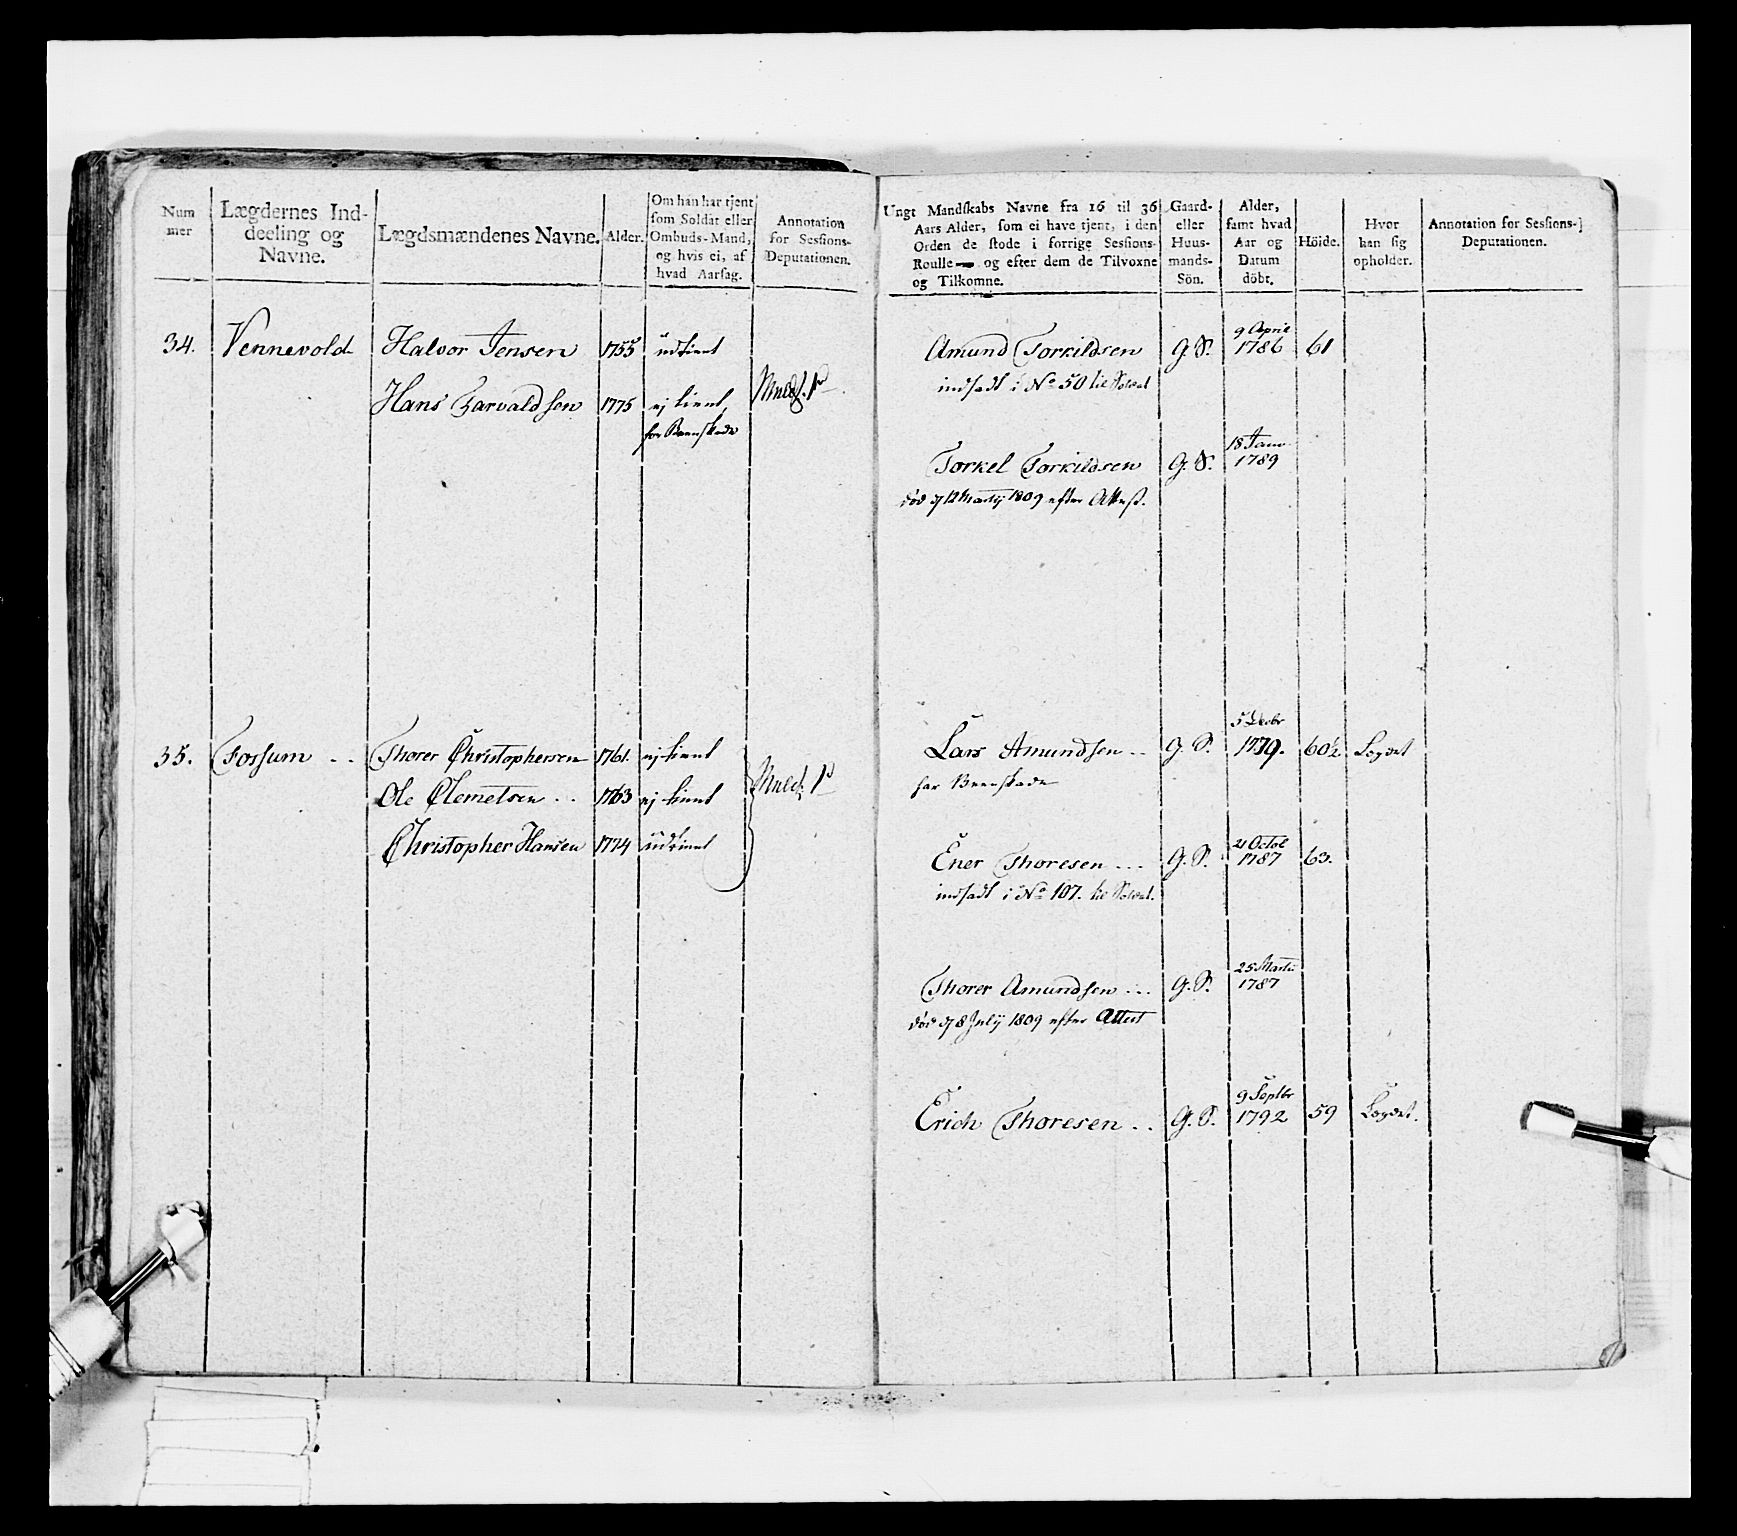 Num
mer
Lægdernes Ind-
deeling og
Navne.
Lægdsmændenes Navne.
Alder.
Om han har tjent
som Soldat eller
Ombuds-Mand,
og hvis ei, af
hvad Aarsag.
Annotation
for Sessions-
Deputationen.
34. Vennevold Halvor Jensen 1755 udtient
Hans Tarvaldsen 1775 ej tient
for Beenskade
35. Fossum .. Thorer Christophersen 1761. ej tient
Ole Clemetsen .. 1763 ej tient
Christopher Hansen 1774 udtient
Ungt Mandskabs Navne fra 16 til 36
Aars Alder, som ei have tjent, i den
Orden de stode i forrige Sessions-
Roulle — og efter dem de Tilvoxne
og Tilkomne.
Gaard-
eller
Huus-
mands-
Sön.
Alder,
samt hvad
Aar og
Datum
döbt.
Höide.
Hvor
han sig
opholder.
Annotation for Sessions-
Deputationen.
9 April
Amund Torkildsen G. S. 1786 61
indsadt i No 50 til Soldat
18 Janv.
Torkel Torkildsen G. S. 1789
død d 12 Martij 1809 efter Attest.
5 Decbr
Lars Amundsen .. G. S. 1779. 60½ Logdet
har Beenskade
21 Octob
Ener Thoresen ... G. S. 1787 63.
indsadt i No 107. til Soldat.
25 Martii
Thorer Amundsen ... G. S. 1787
død d 8 Julij 1809 efter Attest
9 Septbr
Erich Thoresen .. G. S. 1792 59 Logdet.